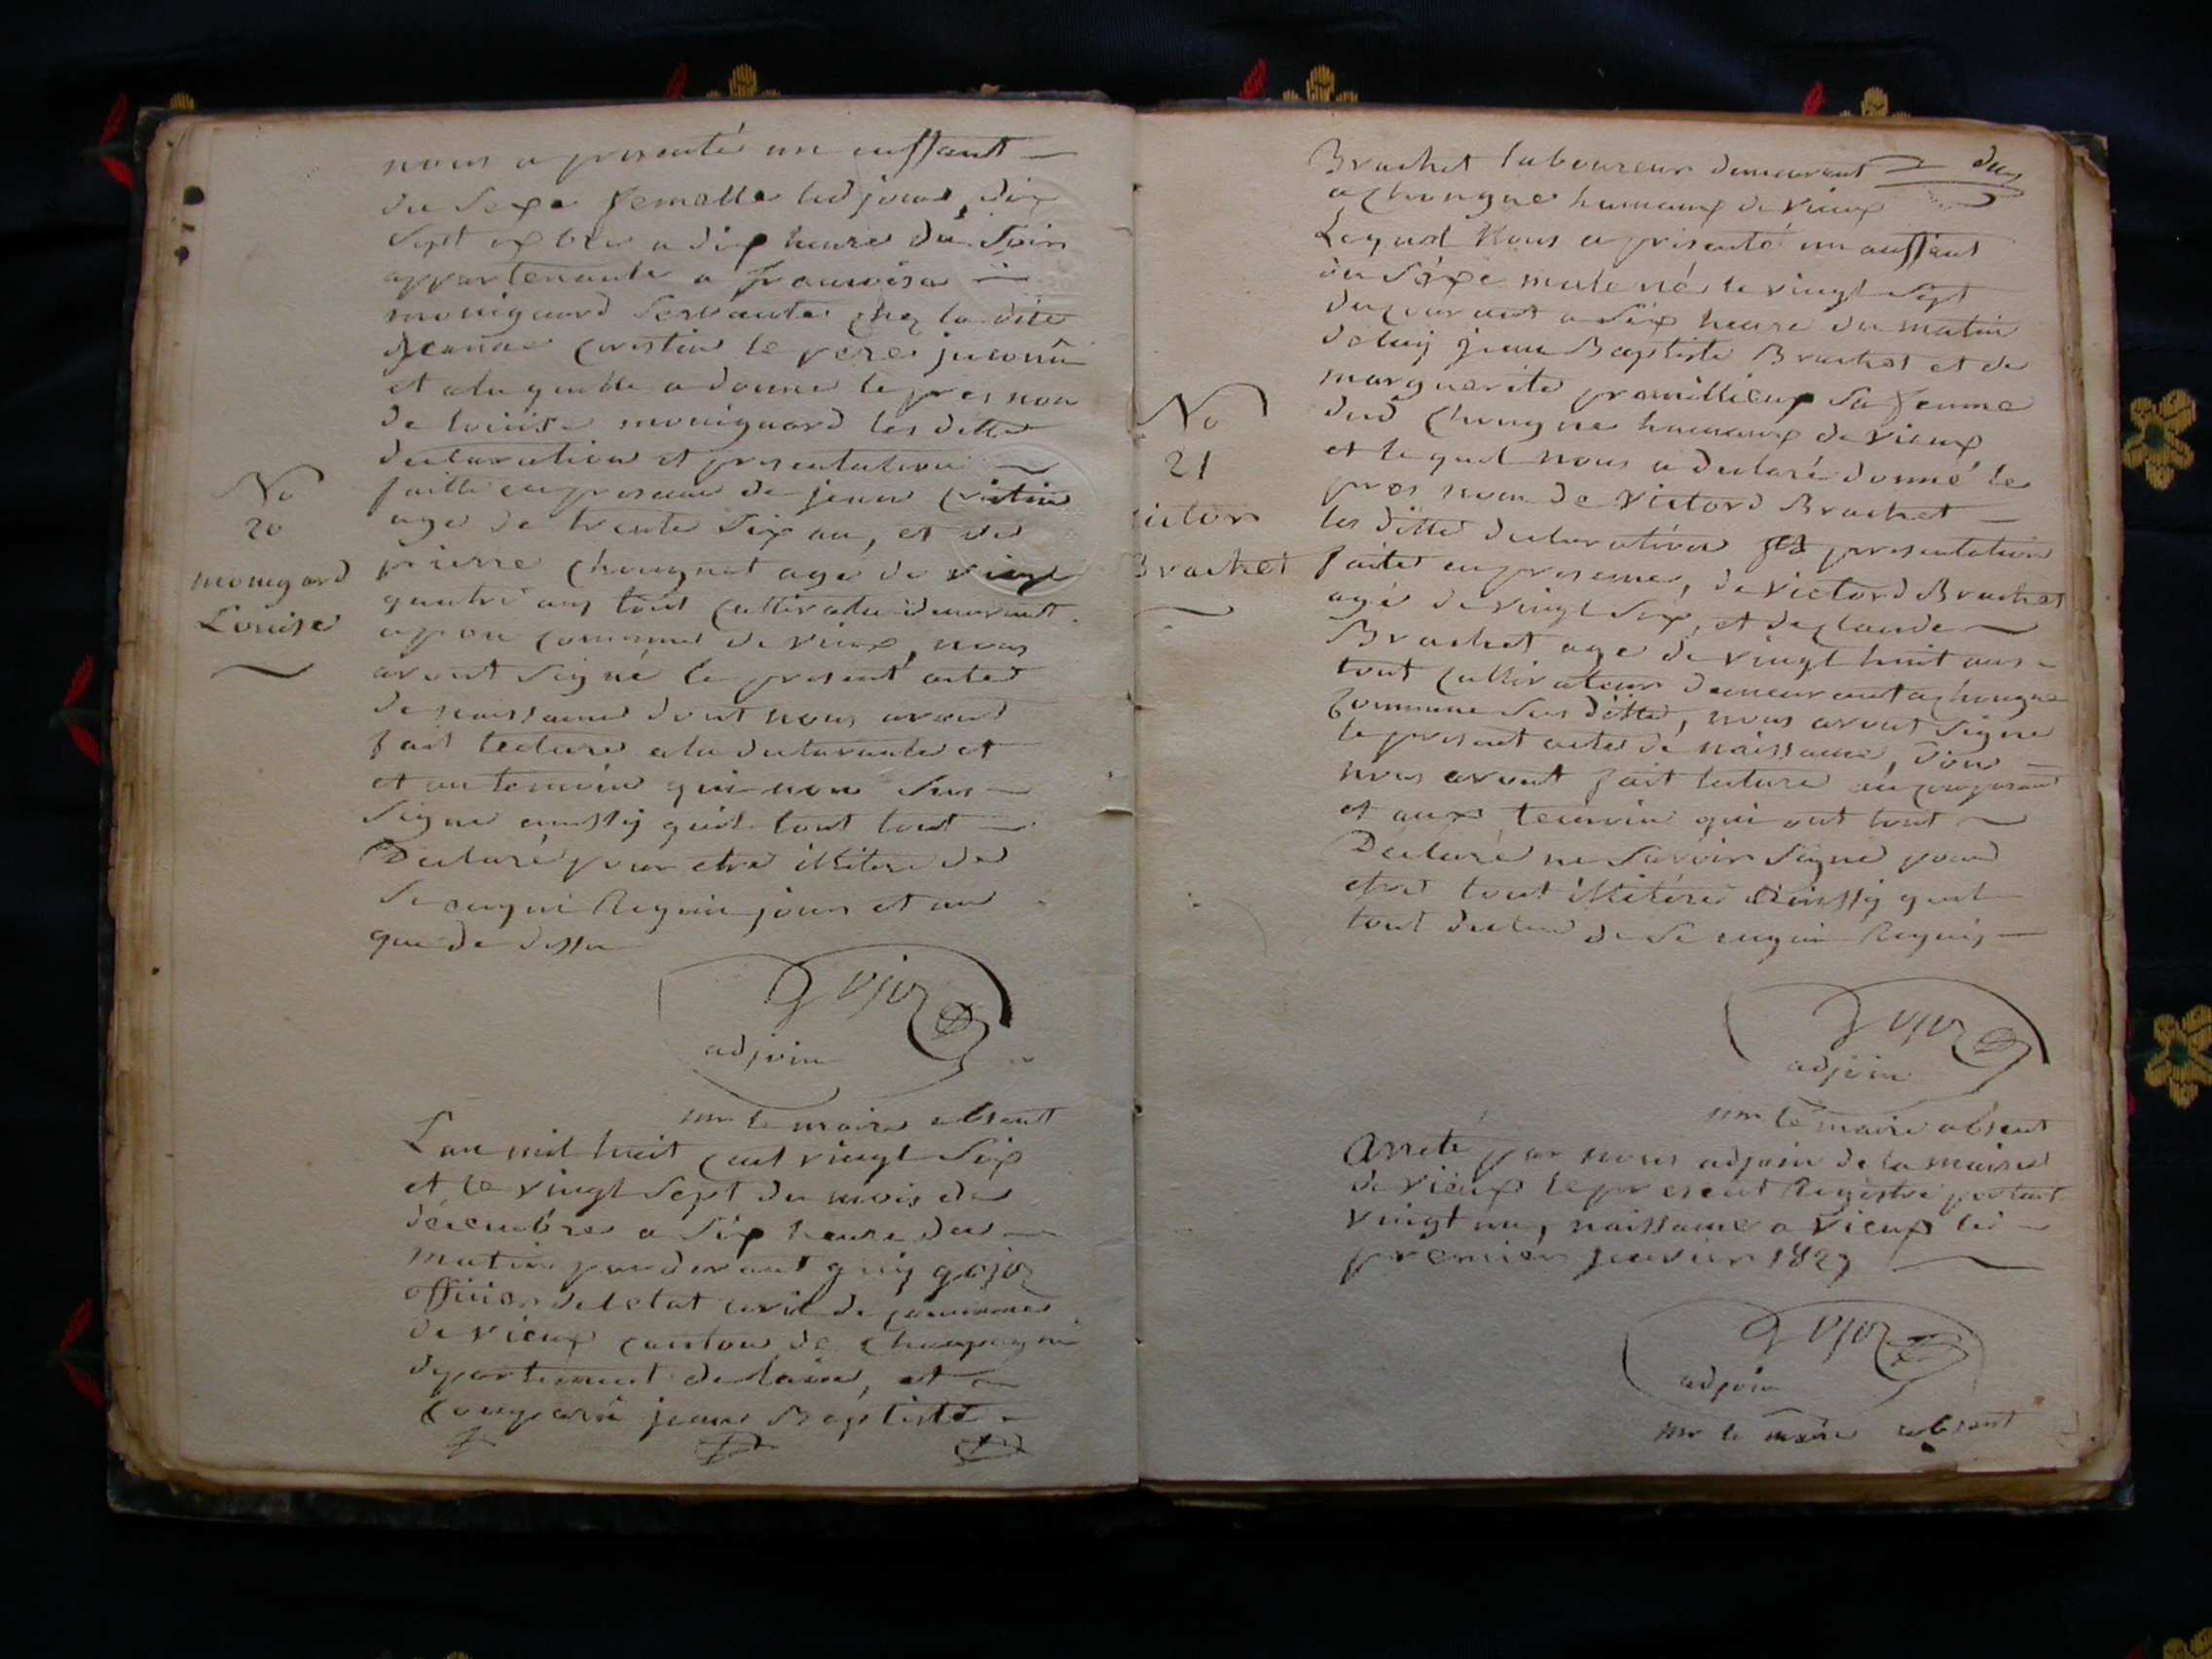 nous a presenté un enffant
du sexe femelle led jour, dix
sept xbre a dix heure du soir
appartenante a francoise
monignard servante chez la dite
jeanne cristin le père inconû
et a laquelle a donné le pres nom
de louise monignard les ditte
declaration et presentation
faitte en presence de jean cristin
age de trente six an, et de
pierre chongnet age de vingt
quatre ans tout cultivateu demeurant
commune de vieux, nous
avont signé le present acted
de naissance dont nous avont
fait lecture a la declarante et
et au temoin qui non sus
signe ainssy quil tout tout
Declaré pour etre illitere de
se enquis Requis jour et an
que de dessu
No
20
monigard
Louise
gojoz
adjoin
mr le maire absent
Lan mil huit cent vingt six
et le vingt sept du mois de
décembre a six heure du
matin pardevant guy gojoz
officier deletat civil de commune
de vieux canton de champagne
departement de lain, et
comparû jean Baptiste
Brachet laboureur demeurant
a chongne hameaux de vieux
Lequel Nous a présenté un anffant
du séxe male né le vingt sept
du courant a six heure du matin
de luy jean Baptiste Brachet et de
marguerite premillieux sa femme
dud chongne hameaux de vieux
et lequel nous a declaré donné le
pres nom de victord Brachet
les ditte declaration et presentation
faites en presence, de victord Brachet
agé de vingt six, et de claude
Brachet age de vingt huit ans
tout cultivateur demeurant a chongne
commune sus ditte, nous avont signe
le present acte dé naissance, dont
nous avont fait lecture au comparant
et aux temoin qui ont tout
Declaré ne savoir signé pour
etre tout illitéré ainssy quil
tout declaré de se enquis Requis
No
21
victor
Brachet
gojoz
adjoin
mr le maire absent
Arreté par nous adjoin de la mairie
de vieux le present Registre portant
vingt un, naissance a vieux le
premier janvier 1827
gojoz
adjoin
mr le maire absent